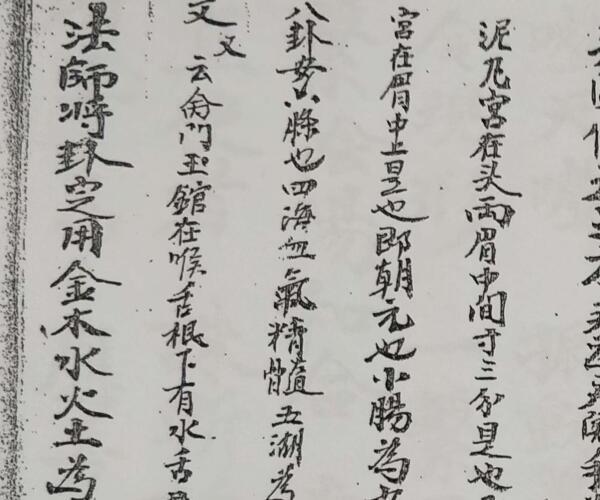 泥丸宮在头兩眉中间寸三分是也
宮在眉中上是也即朝元也小腸為
八卦安八條也四海血氣精髓五湖為
又云門玉舘在喉舌根下有水舌
法師将卦定用金木水火土為